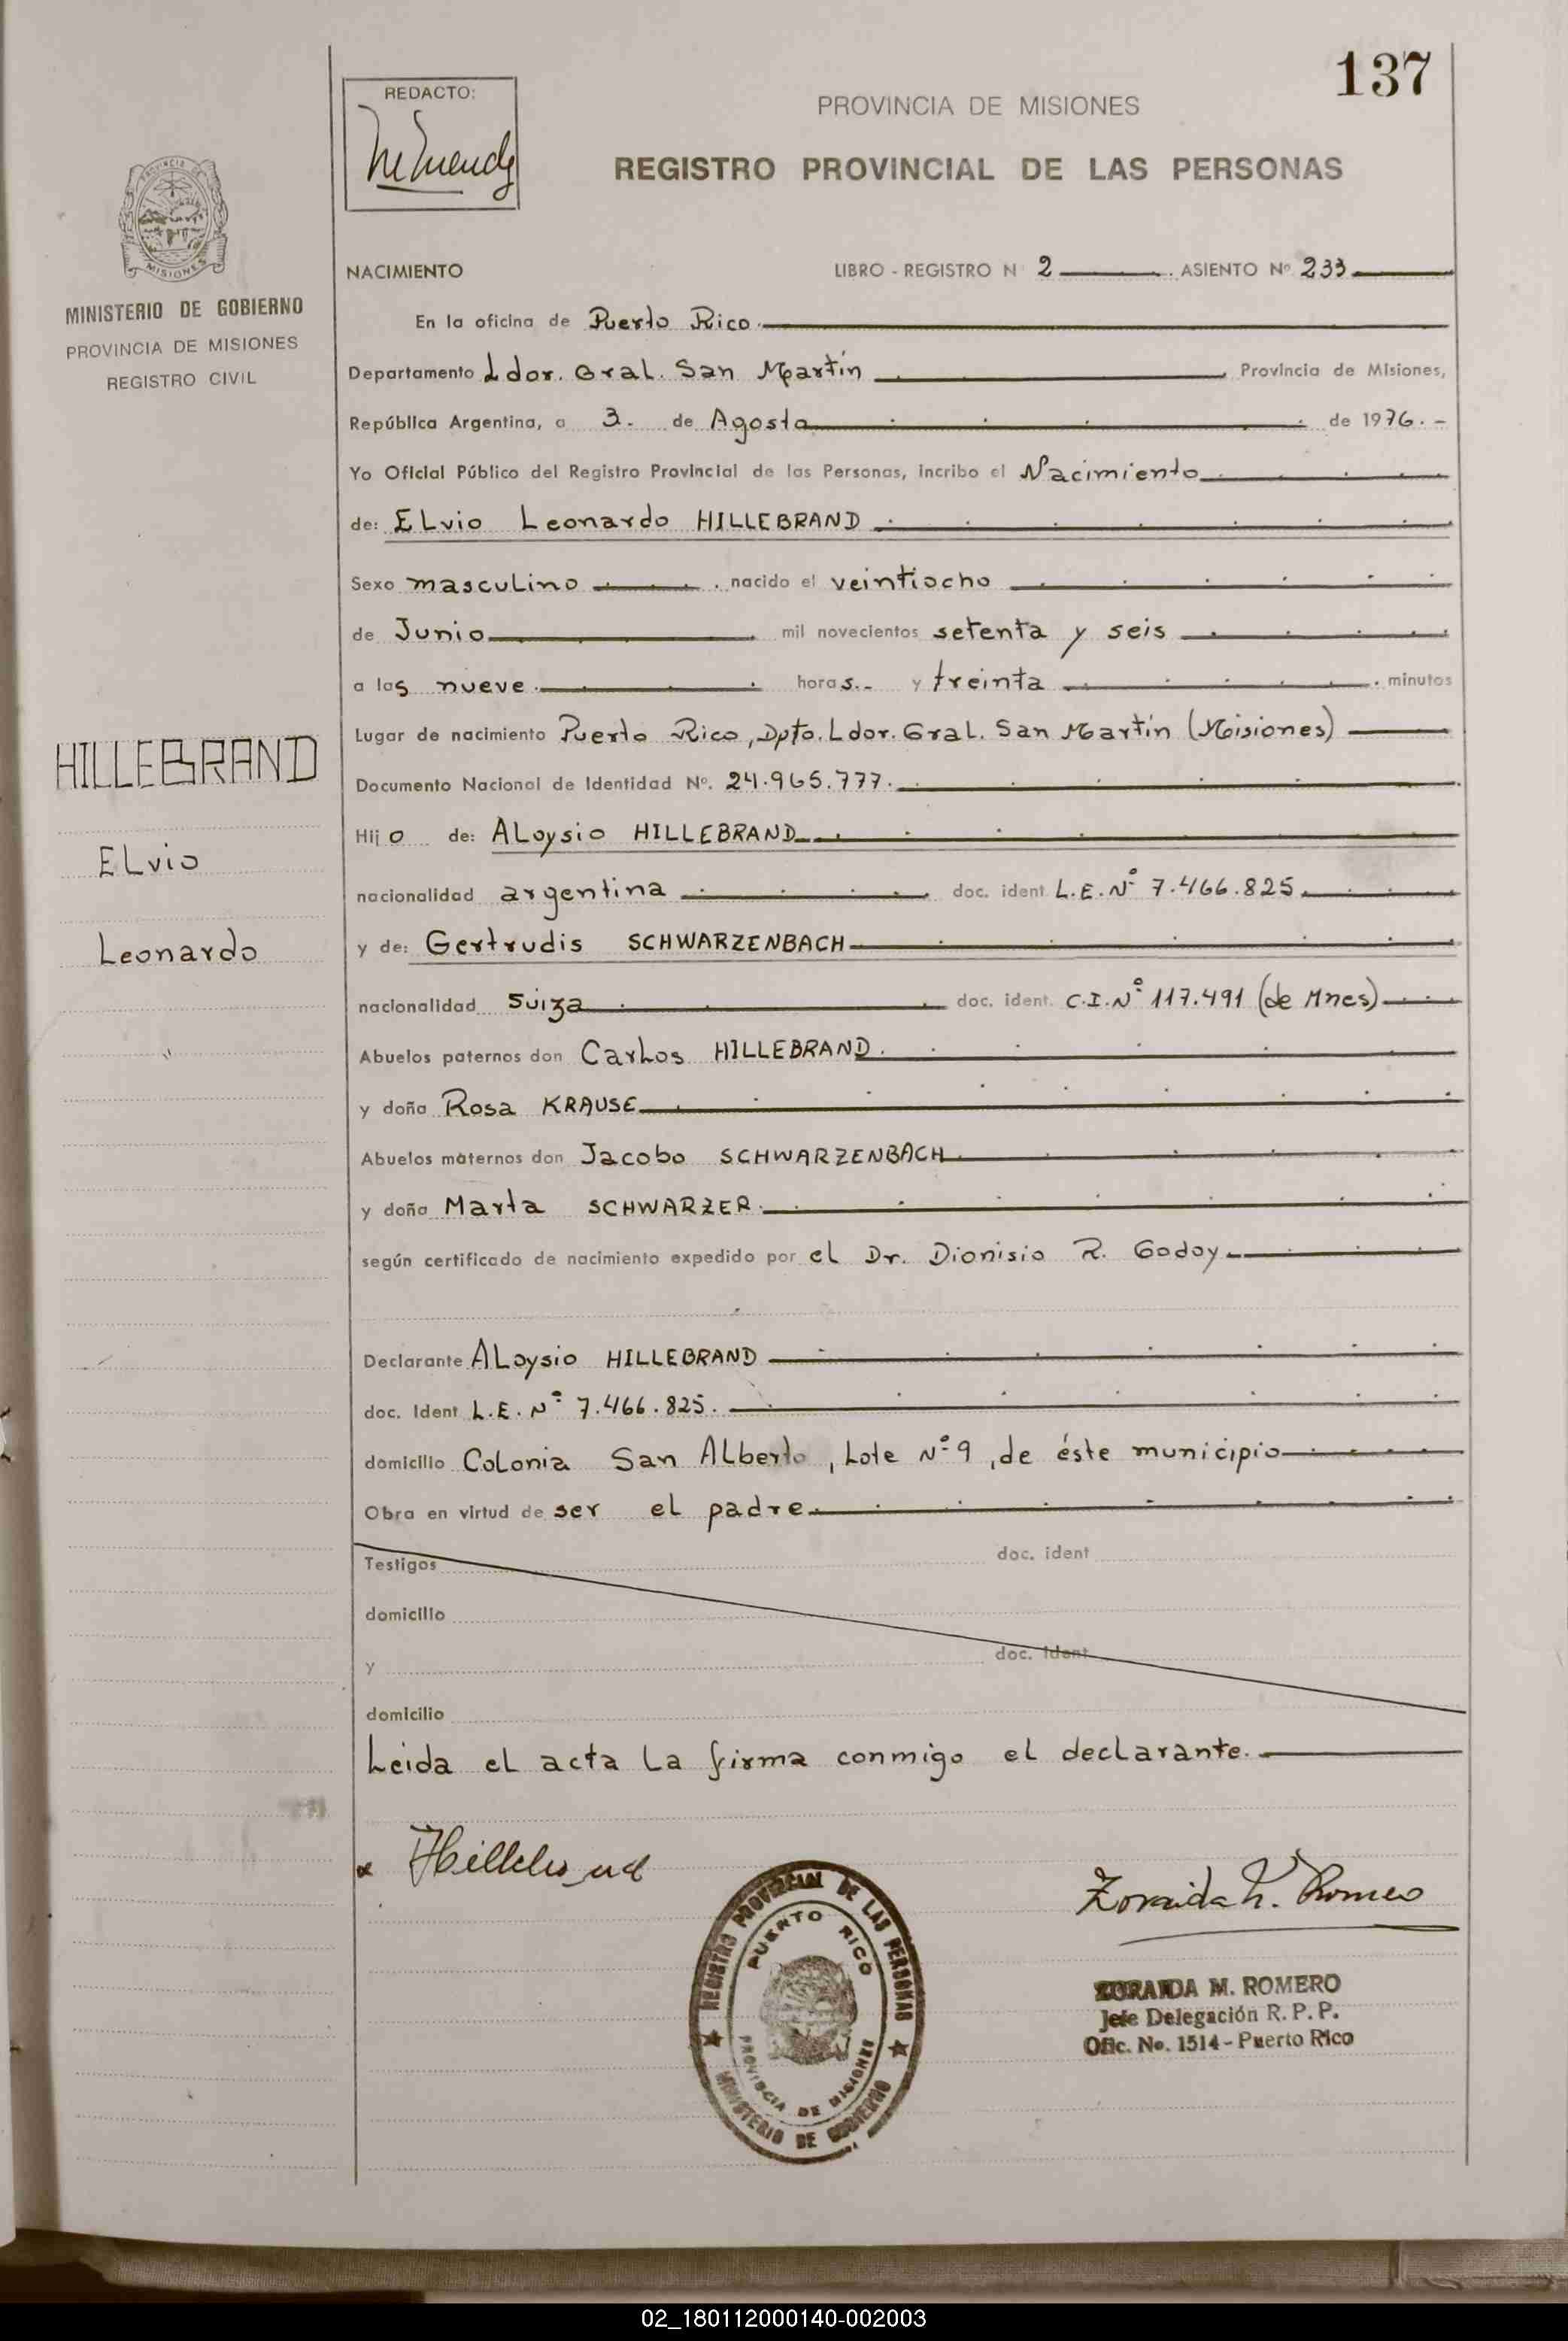 137
REDACTO:
PROVINCIA DE MISIONES
REGISTRO PROVINCIAL DE LAS PERSONAS
PROVINCIA DE
MISIONES
MINISTERIO DE GOBIERNO
PROVINCIA DE MISIONES
REGISTRO CIVIL
NACIMIENTO LIBRO - REGISTRO N 2 ASIENTO Nº 233
En la oficina de Puerto Rico.
Departamento Ldor. Gral. San Martín Provincia de Misiones,
República Argentina, a 3. de Agosto de 1976.-
Yo Oficial Público del Registro Provincial de las Personas, incribo el Nacimiento
de: ELvio Leonardo HILLEBRAND
Sexo masculino nacido el veintiocho
de Junio mil novecientos setenta y seis
a las nueve. horas.- y treinta minutos
Lugar de nacimiento Puerto Rico, Dpto. Ldor. Gral. San Martín (Misiones)
Documento Nacional de Identidad Nº. 24.965.777.
Hijo de: ALoysio HILLEBRAND
nacionalidad argentina doc. ident L.E.Nº 7.466.825.
y de: Gertrudis SCHWARZENBACH
nacionalidad Suiza doc. ident. C.I.Nº 117.491 (de Mnes)
Abuelos paternos don Carlos HILLEBRAND.
y doña Rosa KRAUSE
Abuelos maternos don Jacobo SCHWARZENBACH
y doña Marta SCHWARZER.
según certificado de nacimiento expedido por el Dr. Dionisio R. Godoy
Declarante ALoysio HILLEBRAND
doc. Ident L.E. Nº 7.466.825.
domicilio Colonia San ALberto, Lote Nº 9, de éste municipio
Obra en virtud de ser el padre
Testigos doc. ident
domicilio
y doc. ident
domicilio
Leida el acta la firma conmigo el declarante.
HILLEBRAND
ELvio
Leonardo
Hillebrand
Zoraida M. Romero
REGISTRO PROVINCIAL DE LAS PERSONAS
PUERTO RICO
PROVINCIA DE MISIONES
MINISTERIO DE GOBIERNO
ZORAIDA M. ROMERO
Jefe Delegación R. P. P.
Ofic. No. 1514 - Puerto Rico
02_180112000140-002003